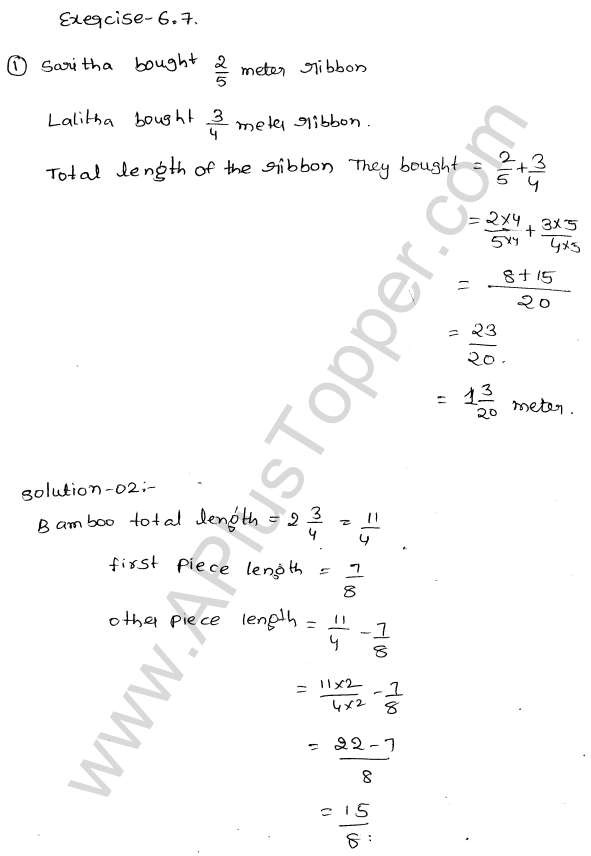 Exercise-6.7.
① Saritha bought 2/5 meter ribbon
Lalitha bought 3/4 meter ribbon.
Total length of the ribbon They bought = 2/5 + 3/4
= 2×4/5×4 + 3×5/4×5
= 8+15/20
= 23/20.
= 1 3/20 meter.
Solution-02:-
Bamboo total length = 2 3/4 = 11/4
first piece length = 7/8
other piece length = 11/4 - 7/8
= 11×2/4×2 - 7/8
= 22-7/8
= 15/8:
www.APlusTopper.com